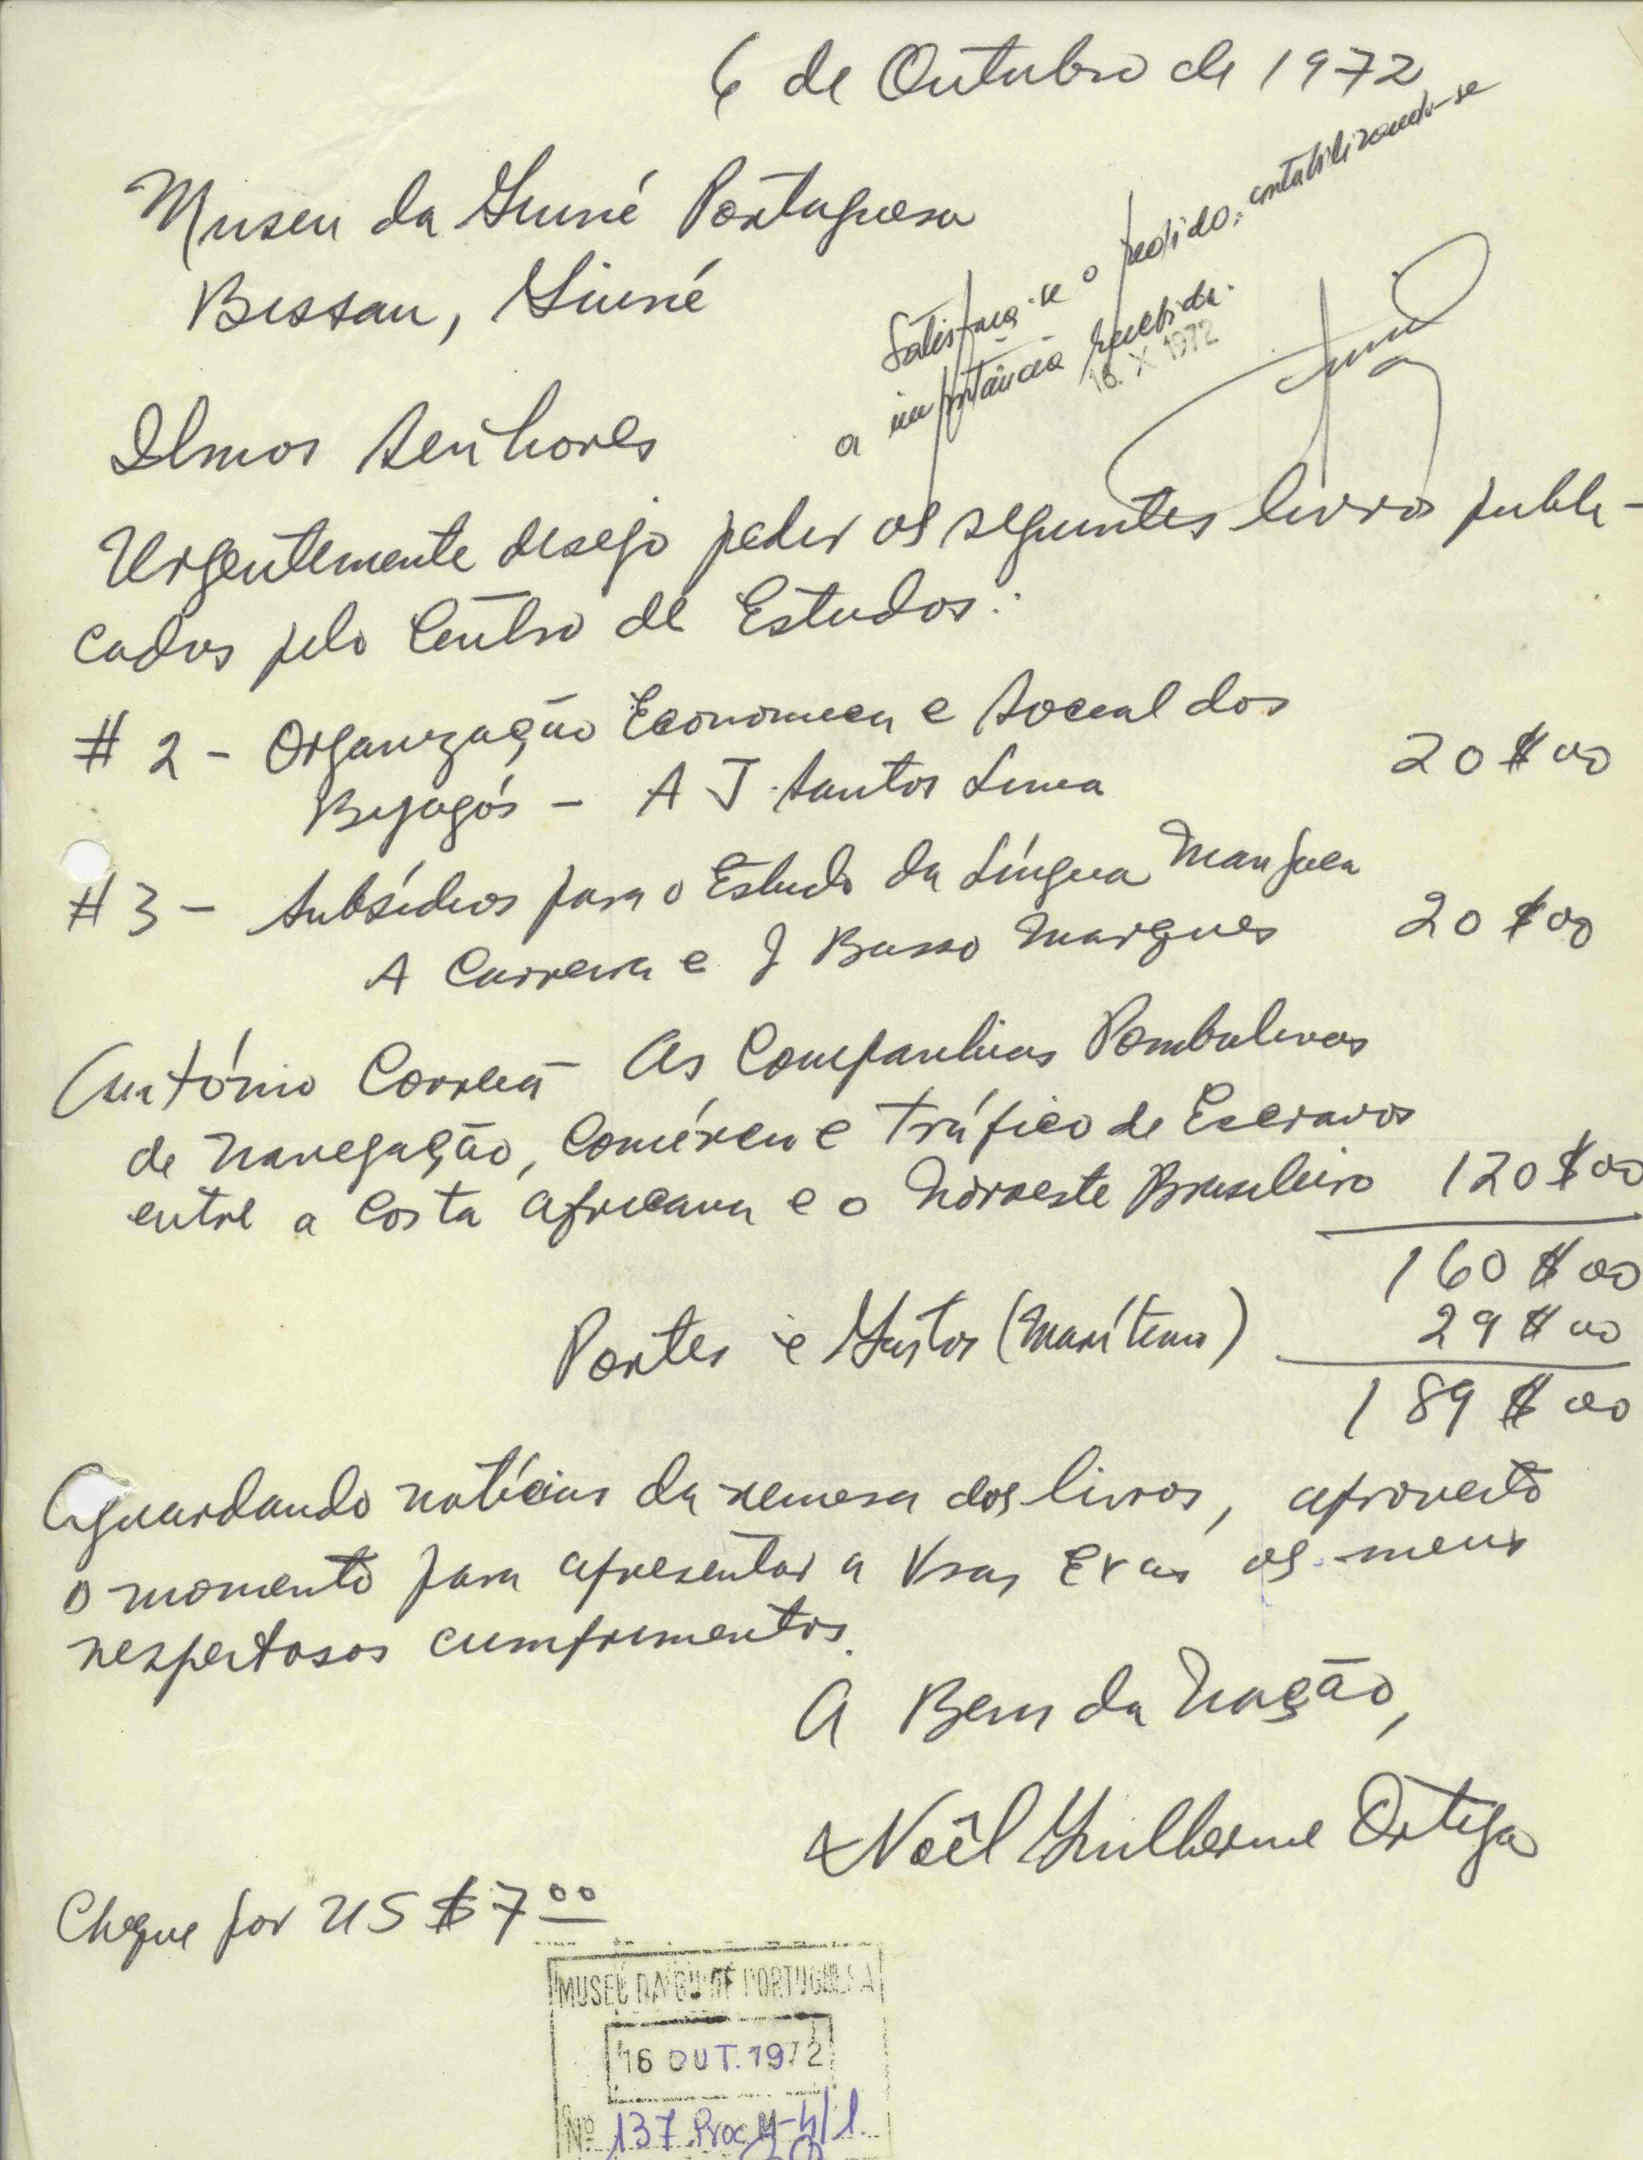 6 de Outubro de 1972
Museu da Guiné Portuguesa
Bissau, Guiné
Satisfaça-se o pedido, contabilizando-se
a importância recebida.
16. X 1972
Ilmos Senhores
Urgentemente desejo pedir os seguintes livros publi-
cados pelo Centro de Estudos:
# 2 - Organização Economica e Social dos
Bijagós - A J. Santos Lima 20$00
# 3 - Subsídios para o Estudo da Língua Manjaca
A Carreira e J Basso Marques 20$00
António Correia As Companhias Pombalinas
de Navegação, Comércio e Tráfico de Escravos
entre a Costa Africana e o Nordeste Brasileiro 120$00
160$00
Portes e Gastos (Marítimo) 29$00
189$00
Aguardando notícias da remesa dos livros, aproveito
o momento para apresentar a Vsas Exas os meus
respeitosos cumprimentos.
A Bem da Nação,
Noêl Guilherme Ortega
Cheque por US $7 00
MUSEU DA GUINÉ PORTUGUESA
16 OUT. 1972
Nº 137 Proc